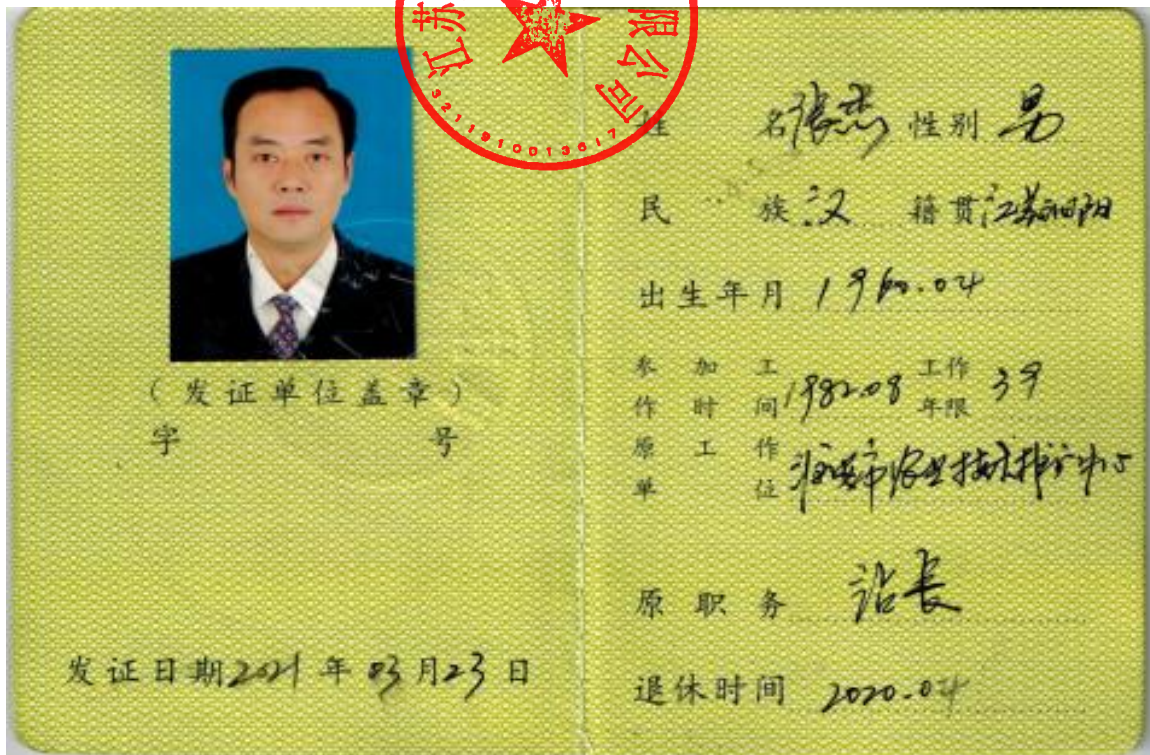 江苏 限公司
3211910013617
(发证单位盖章)
字 号
发证日期2021年03月23日
姓 名张杰 性别 男
民 族 汉 籍贯江苏泗阳
出生年月 1960.04
参加工作时间1982.08 工作年限 39
原工作单位 淮安市农业技术推广中心
原职务 站长
退休时间 2020.04